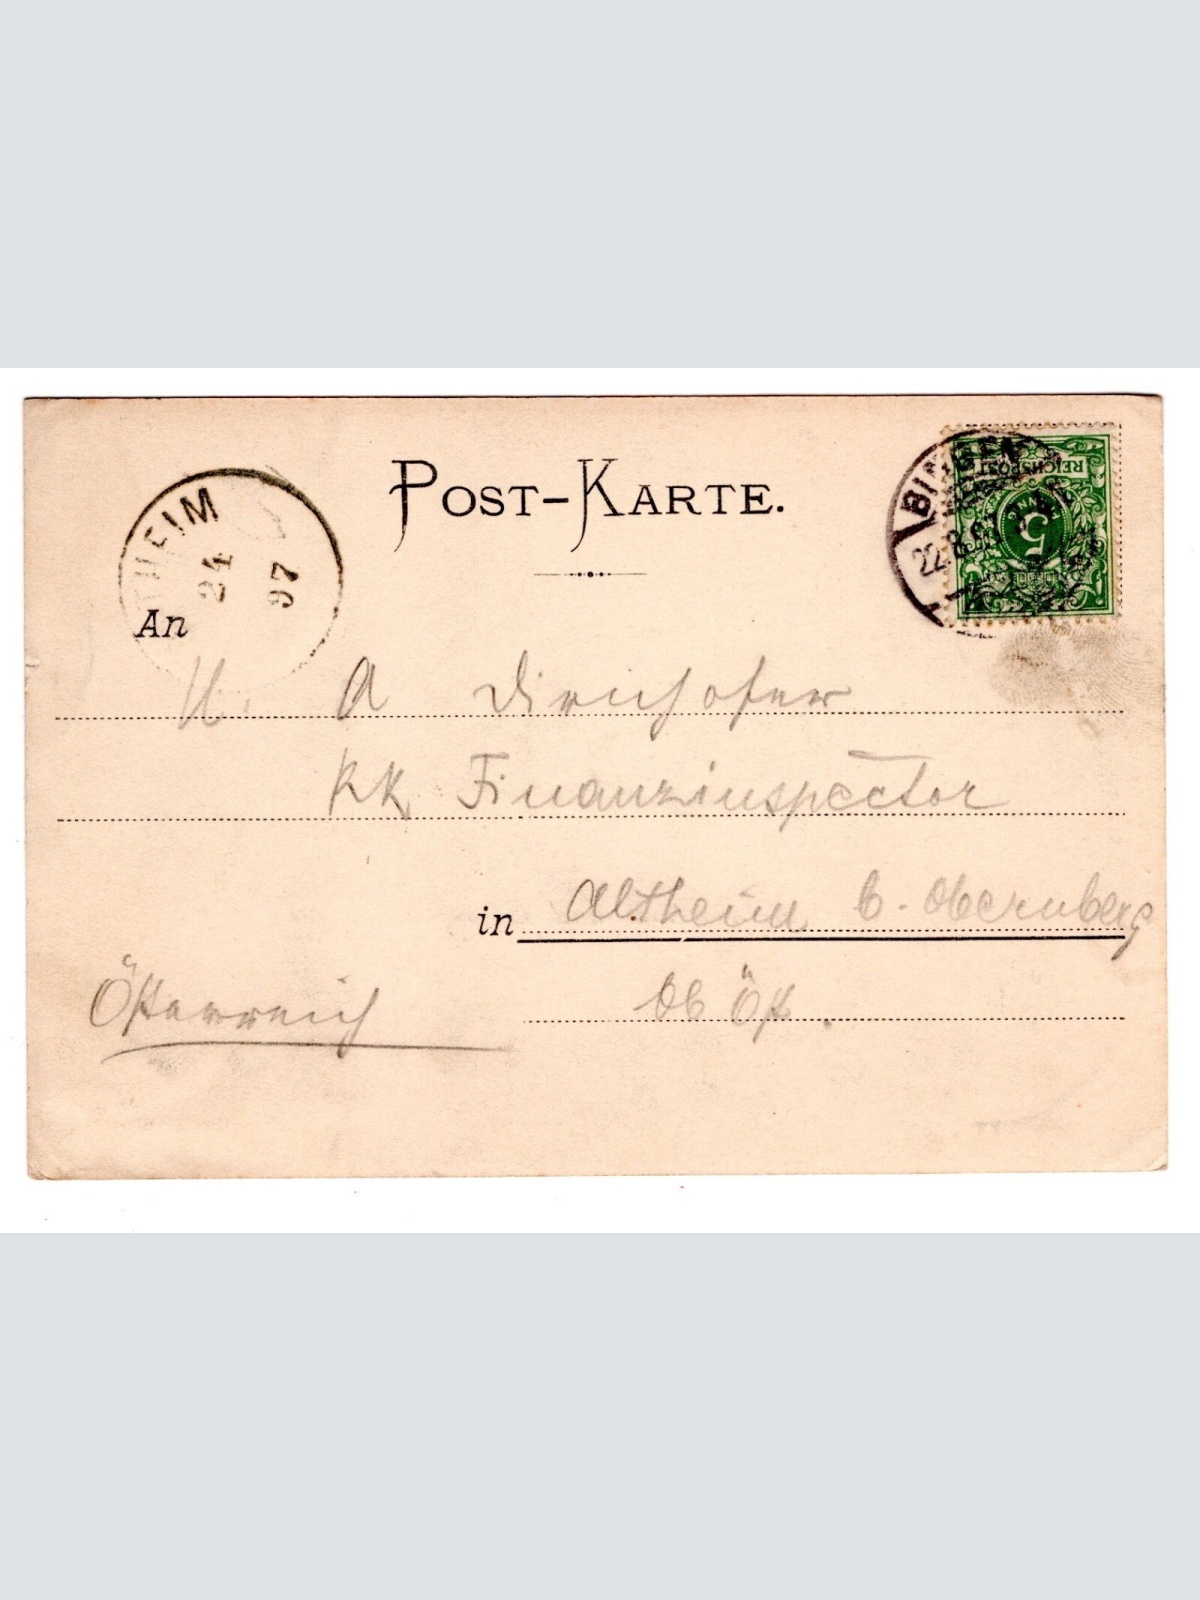 POST-KARTE.
THEIM
24
97
BINGEN
22.8.97
REICHSPOST
5
An
H. A Dirnhofer
KK Finanzinspector
in Altheim b. Obernberg
Ob Öst.
Österreich